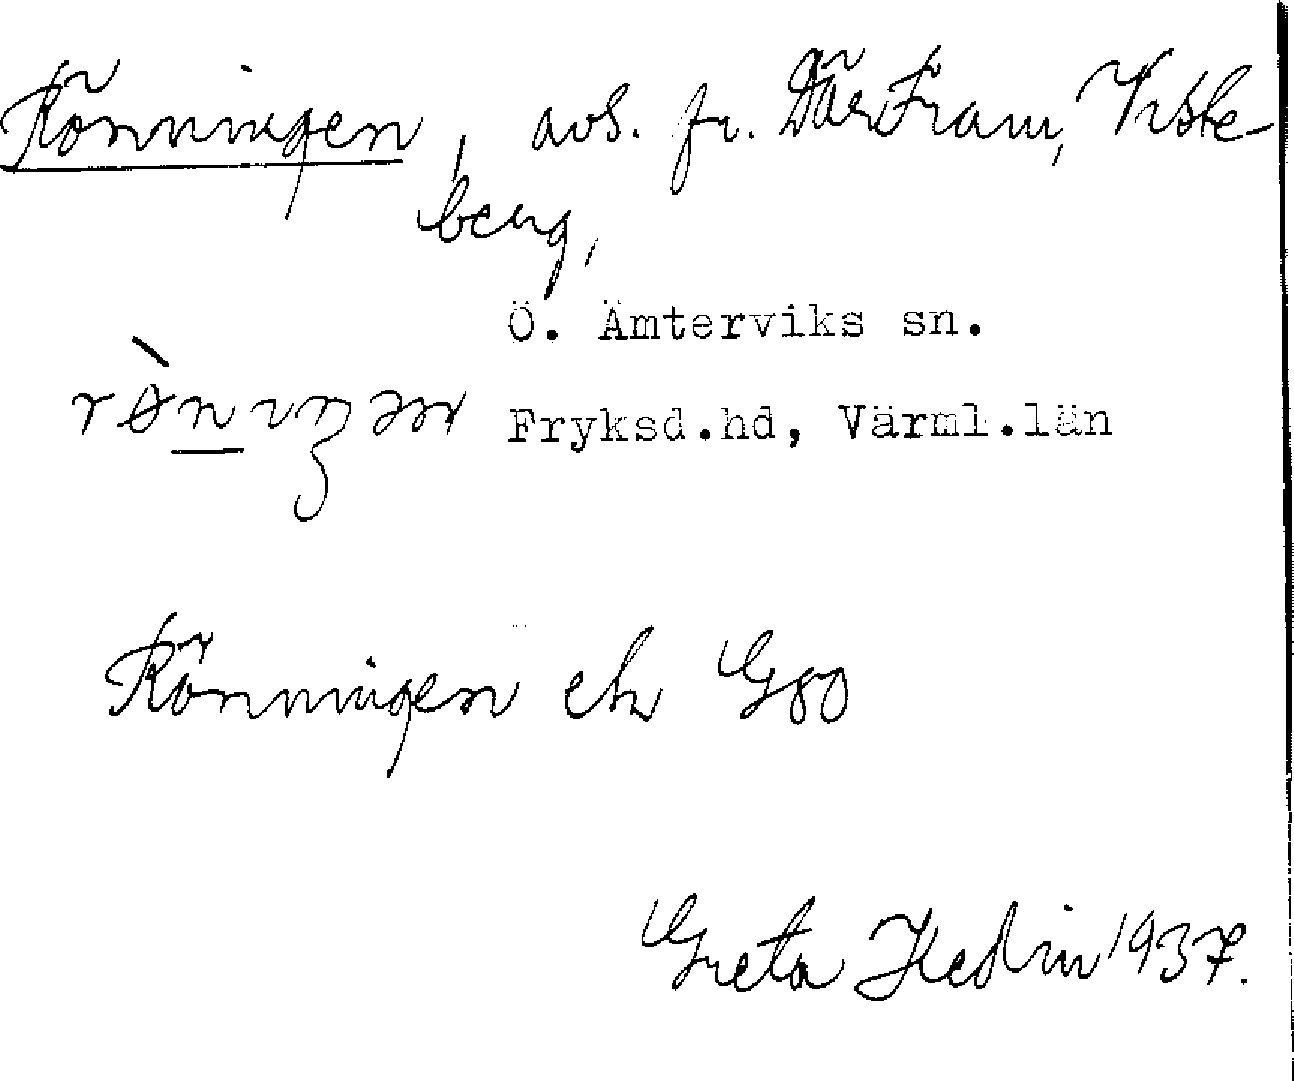 Rönningen, avs. fr. Där Fram, Viste-
berg,
Ö. Ämterviks sn.
Fryksd.hd, Värml.län
Rönningen ek G80
Greta Hedin 1937.